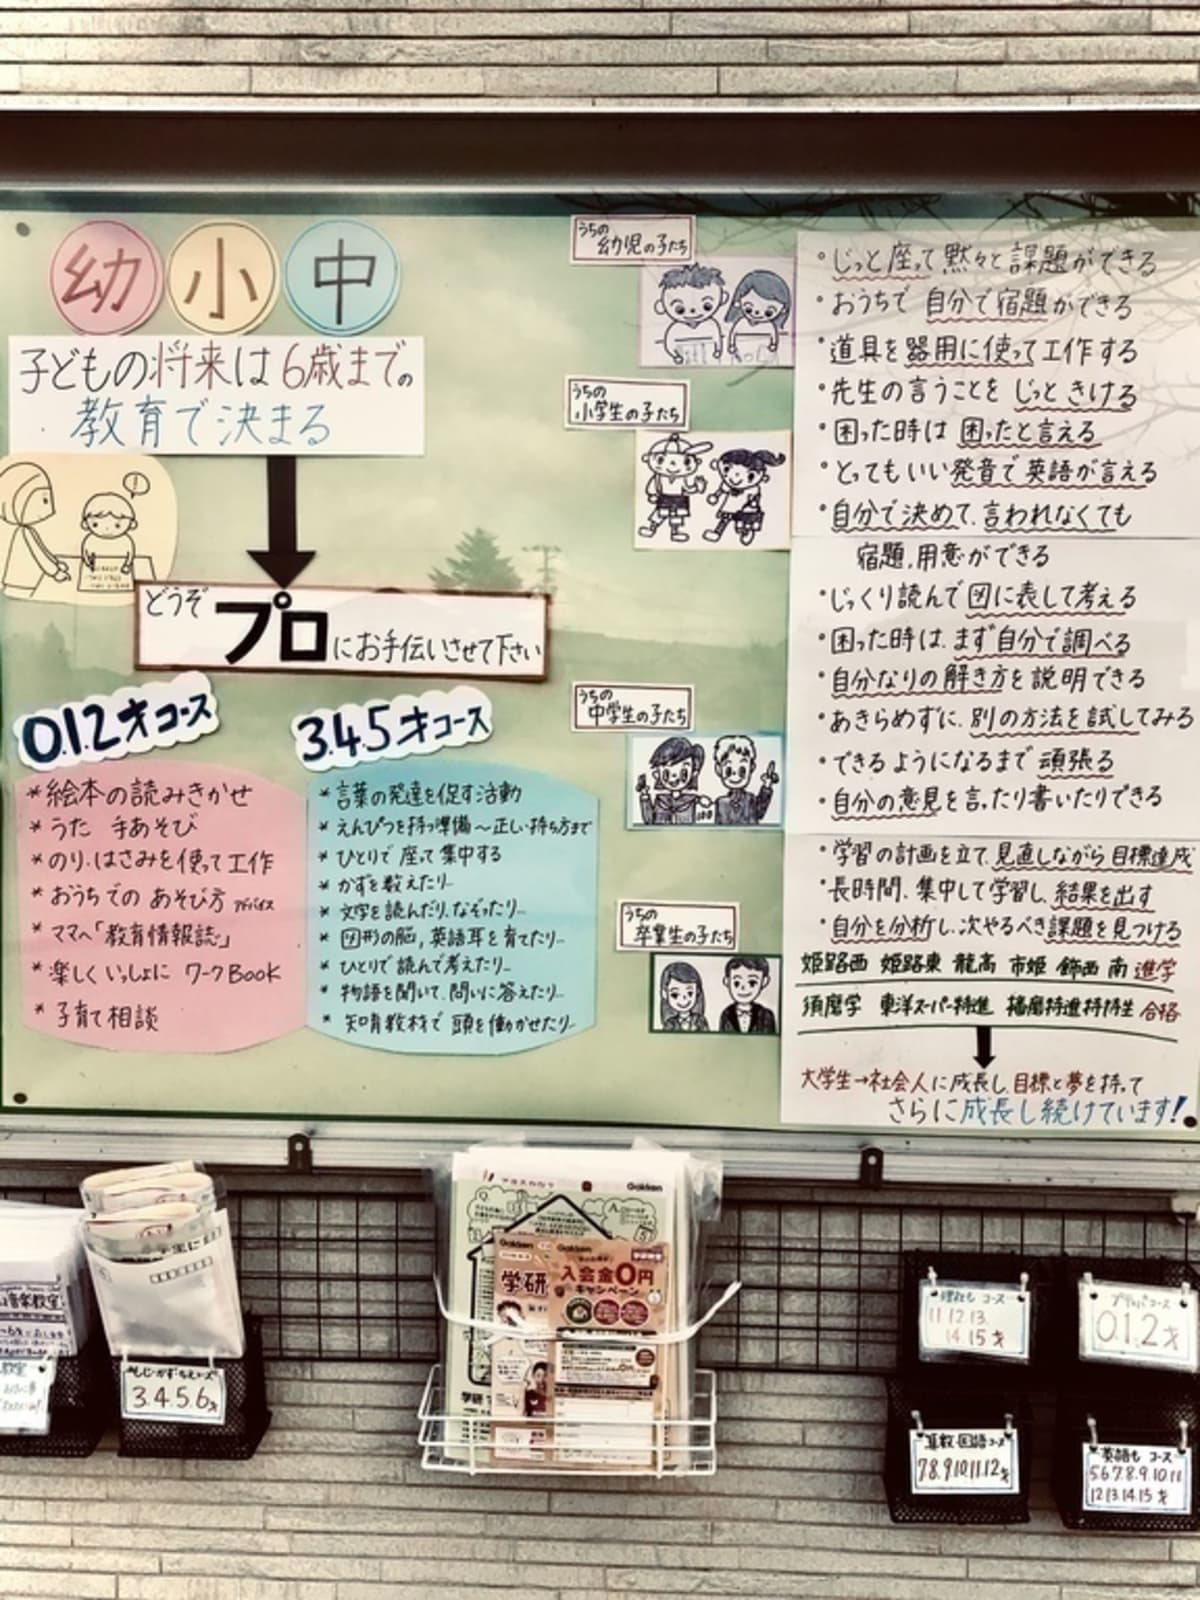 幼 小 中
子どもの将来は6歳までの
教育で決まる
どうぞ
プロにお手伝いさせて下さい
0.1.2才コース
*絵本の読みきかせ
*うた 手あそび
*のり、はさみを使って工作
*おうちでの あそび方 アドバイス
*ママへ「教育情報誌」
*楽しく いっしょに ワークBOOK
*子育て相談
3.4.5才コース
*言葉の発達を促す活動
*えんぴつを持つ準備〜正しい持ち方まで
*ひとりで 座って集中する
*かずを数えたり…
*文字を読んだり、なぞったり…
*図形の脳, 英語耳を育てたり…
*ひとりで読んで考えたり…
*物語を聞いて、問いに答えたり…
*知育教材で 頭を働かせたり…
うちの
幼児の子たち
うちの
小学生の子たち
うちの
中学生の子たち
うちの
卒業生の子たち
・じっと座って黙々と課題ができる
・おうちで 自分で宿題ができる
・道具を器用に使って工作する
・先生の言うことを じっときける
・困った時は 困ったと言える
・とってもいい発音で英語が言える
・自分で決めて、言われなくても
宿題、用意ができる
・じっくり読んで図に表して考える
・困った時は、まず自分で調べる
・自分なりの解き方を説明できる
・あきらめずに、別の方法を試してみる
・できるようになるまで頑張る
・自分の意見を言ったり書いたりできる
・学習の計画を立て、見直しながら目標達成
・長時間、集中して学習し、結果を出す
・自分を分析し、次やるべき課題を見つける
姫路西 姫路東 龍高 市姫 飾西 南 進学
須磨学 東洋スーパー特進 播磨特進特待生 合格
大学生→社会人に成長し、目標と夢を持って
さらに成長し続けています!
音楽教室
もじ・かず・ちえコース
3.4.5.6才
Gakken
Gakken
Gakken
学研
入会金0円
キャンペーン
理社もコース
11.12.13.
14.15才
プリッパコース
0.1.2才
算数・国語コース
7.8.9.10.11.12才
英語も コース
5.6.7.8.9.10.11
12.13.14.15才